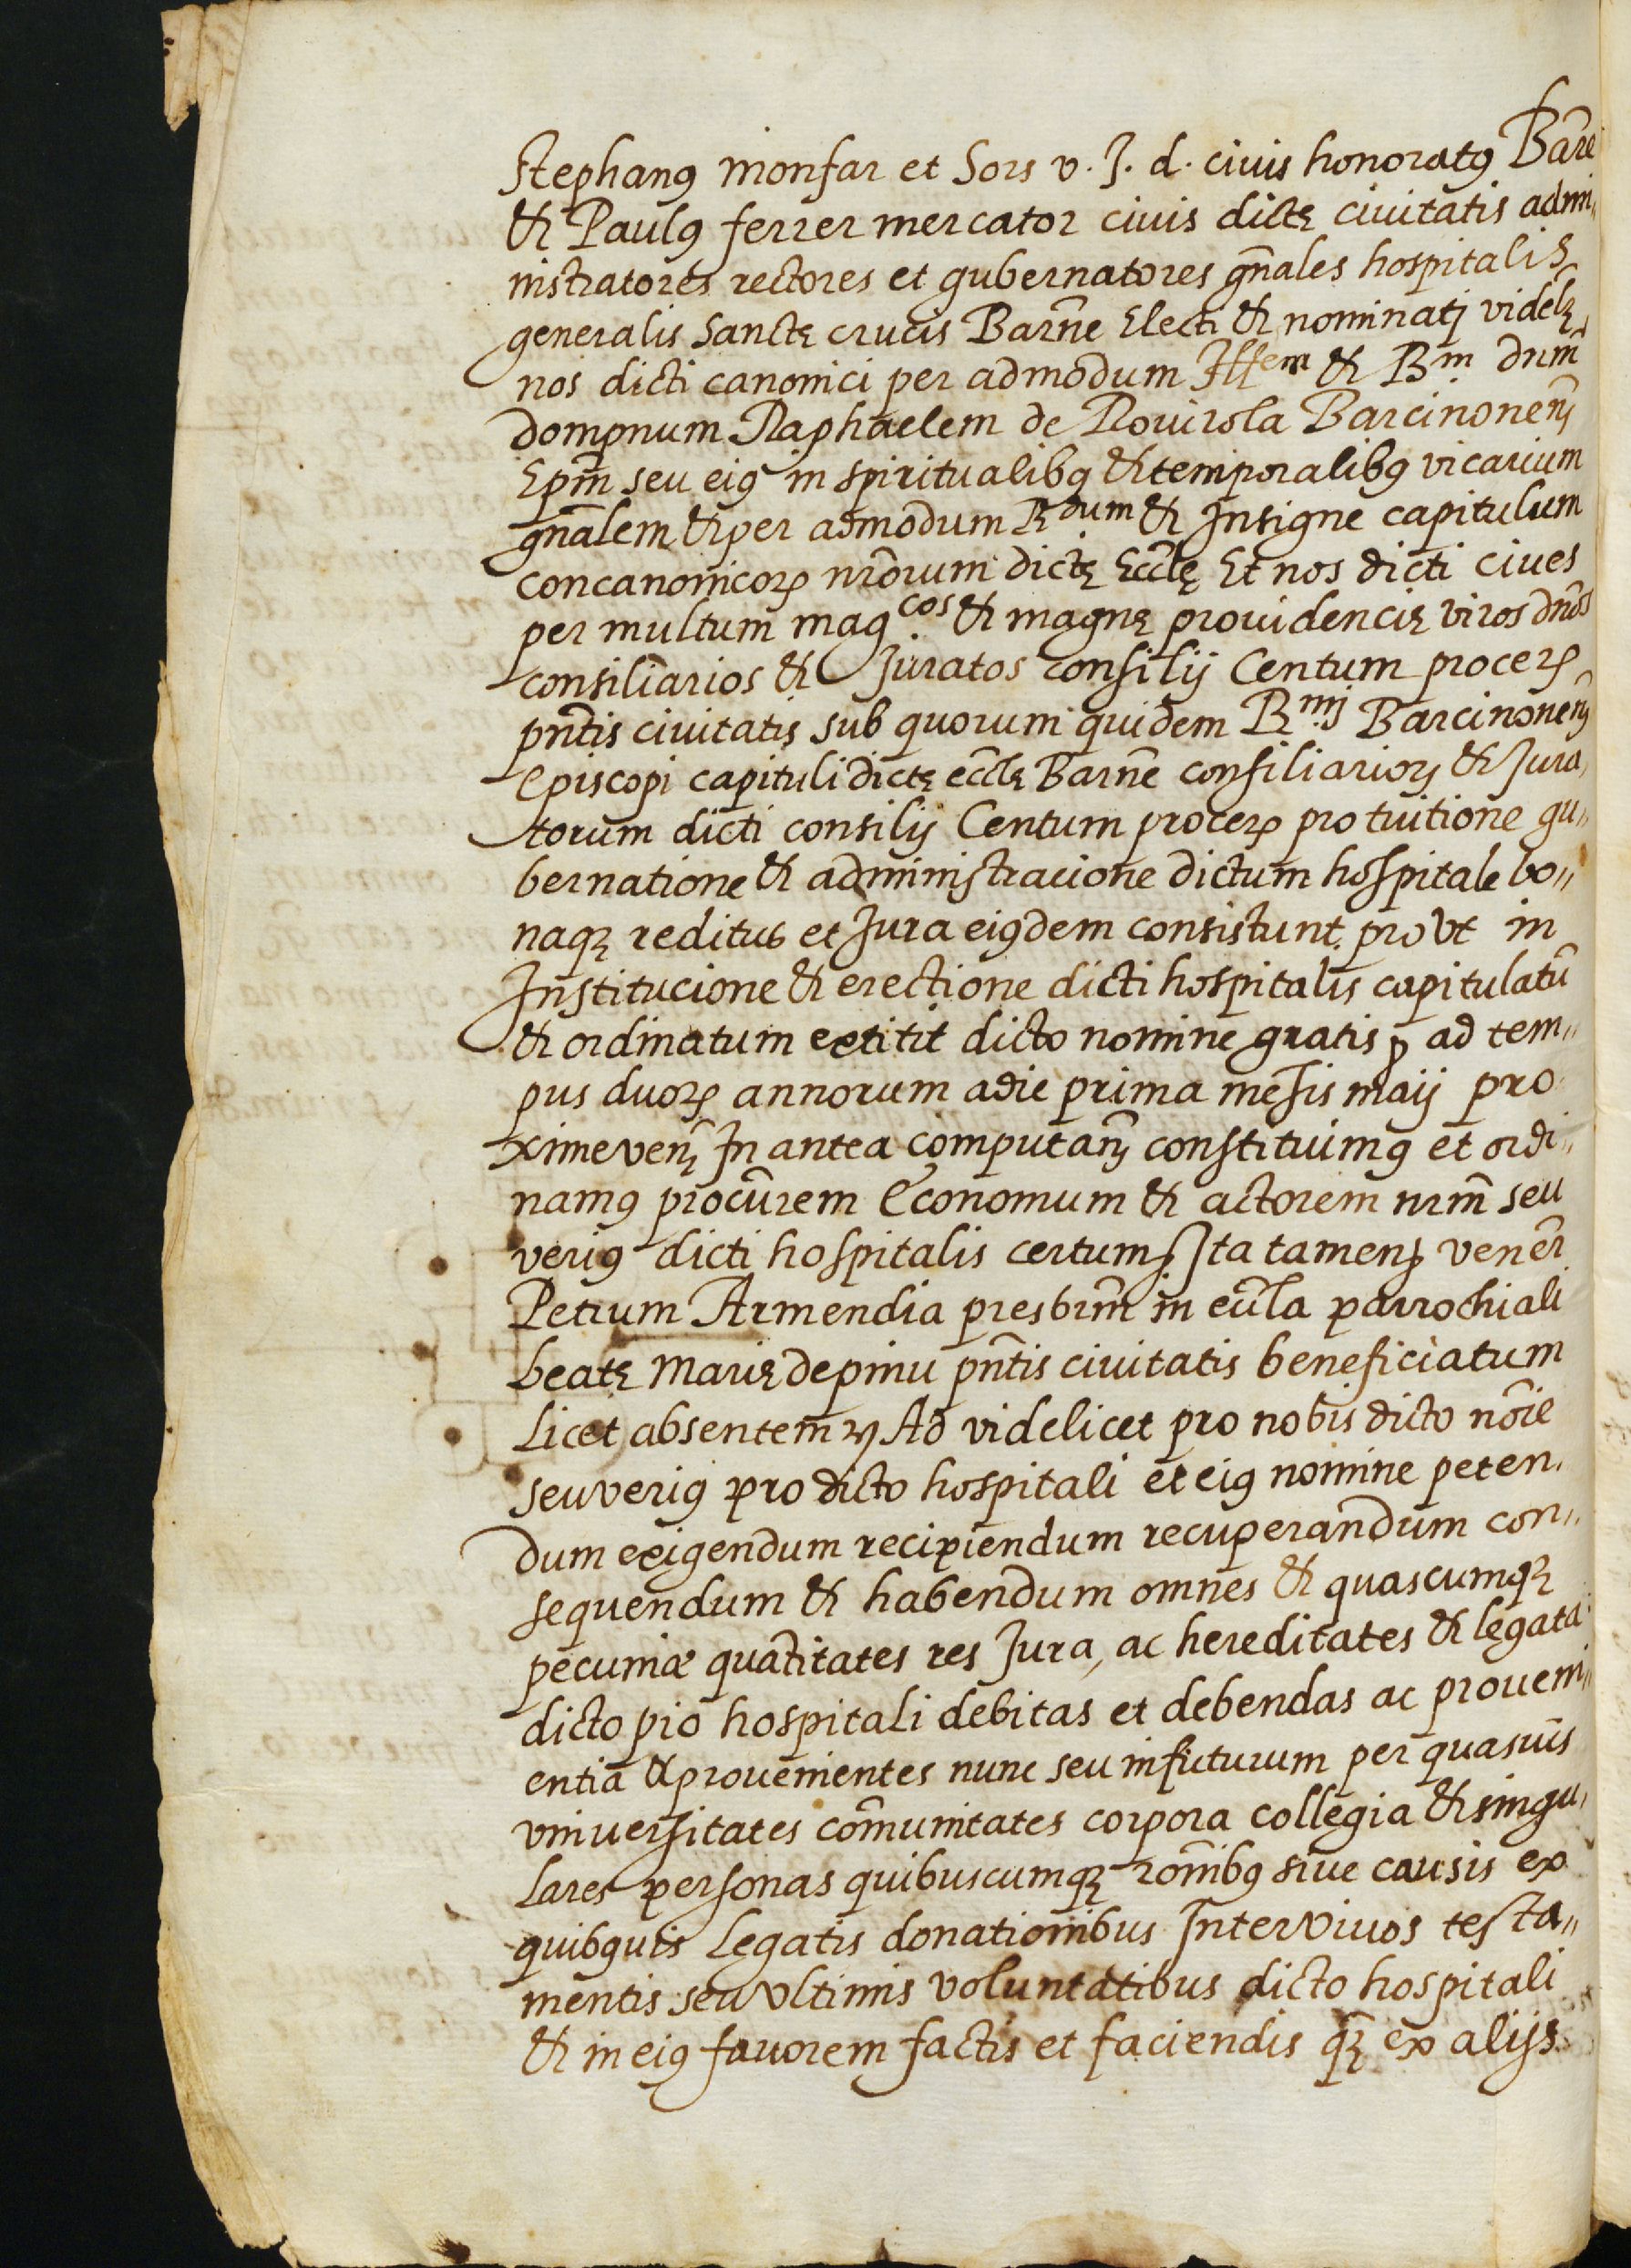 Stephanꝰ monfar et Sors v. J. d. ciuis honoratꝰ Barñe
& Paulꝰ ferrer mercator ciuis dictę ciuitatis admi„
nistratores rectores et gubernatores gñales hospitalis
generalis Sanctę crucis Barñe Electi & nominatj videlꝫ
nos dicti canonici per admodum Illem & Rm. dnm̃
dompnum Raphaelem de Rouirola Barcinonenꝫ
Epm̃ seu eiꝰ in spiritualibꝰ & temporalibꝰ vicarium
gñalem & per admodum R.dum & Insigne capitulum
concanonicoꝝ nr̃orum dictę Eccłę Et nos dicti ciues
per multum magcos. & magnę prouidencię viros dños
consiliarios & Juratos consilij Centum proceꝝ
pñtis ciuitatis sub quorum quidem R.mj Barcinonenꝫ
Episcopi capituli dictę eccłę Barñe consiliarioꝝ & Jura,
torum dicti consilij Centum proceꝝ pro tuitione gu„
bernatione & administracione dictum hospitale bo„
naqꝫ reditus et Jura eiꝰdem consistunt, provt in
Institucione & erectione dicti hospitalis capitulatũ
& ordinatum extitit dicto nomine gratis ꝑ ad tem„
pus duoꝝ annorum adie prima mesis maij pro
xime venꝫ In antea computanꝫ constituimꝰ et ordi„
namꝰ procũrem Economum & actorem nrm̃ seu
veriꝰ dicti hospitalis certumꝫ Ita tamenꝫ veneR̃
Petrum Armendia presbrm̃ in eccl̃a parrochiali
beatę Marię de pinu pñtis ciuitatis beneficiatum
Licet absentem ꝫ Ad videlicet pro nobis dicto nõie
seu veriꝰ pro dicto hospitali et eiꝰ nomine peten,
dum exigendum recipiendum recuperandum con„
sequendum & habendum omnes & quascumqꝫ
pecuniæ quantitates res Jura, ac hereditates & legata
dicto pio hospitali debitas et debendas ac proueni„
entia & prouenientes nunc seu infuturum per quasuis
vniuersitates com̃unitates corpora collegia & singu,
lares personas quibuscumqꝫ rõnibꝰ siue causis ex
quibꝰuis legatis donationibus Intervivos testa„
mentis seu vltimis voluntatibus dicto hospitali
& in eiꝰ fauorem factis et faciendis qꝫ ex alijs